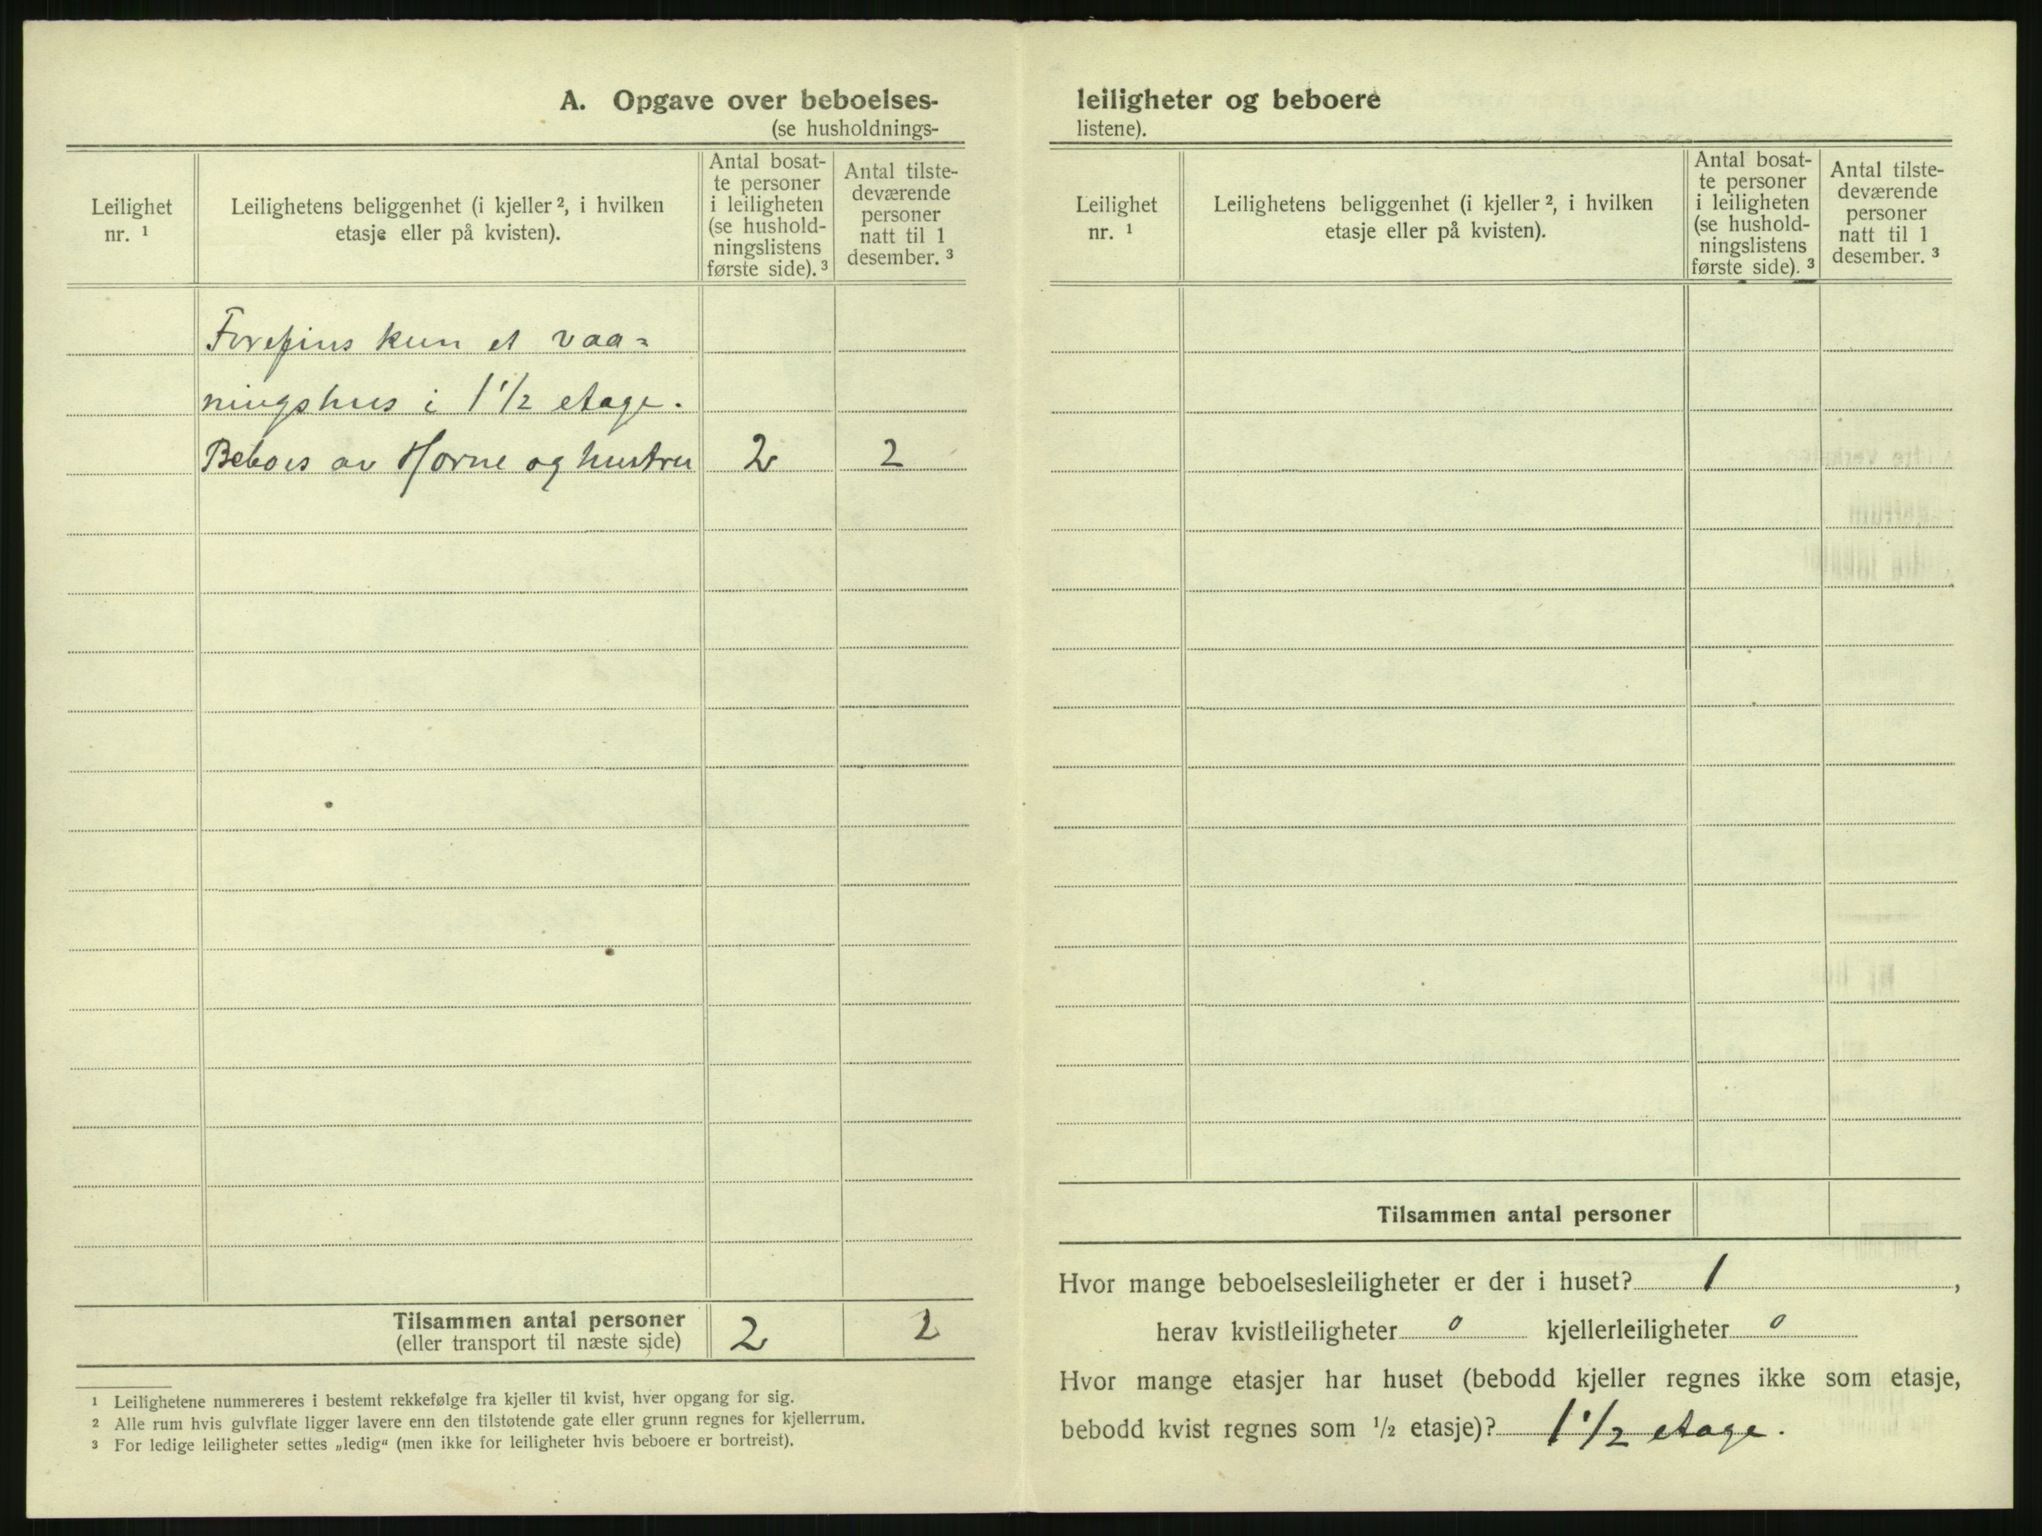 A. Opgave over beboelses-
(se husholdnings-
Leilighet
nr. ¹
Leilighetens beliggenhet (i kjeller ², i hvilken
etasje eller på kvisten).
Antal bosat-
te personer
i leiligheten
(se hushold-
ningslistens
første side). ³
Antal tilste-
deværende
personer
natt til 1
desember. ³
Forefins kun et vaa=
ningshus i 1 1/2 etage.
Beboes av Horne og hustru 2 2
Tilsammen antal personer
(eller transport til næste side) 2 2
¹ Leilighetene nummereres i bestemt rekkefølge fra kjeller til kvist, hver opgang for sig.
² Alle rum hvis gulvflate ligger lavere enn den tilstøtende gate eller grunn regnes for kjellerrum.
³ For ledige leiligheter settes „ledig“ (men ikke for leiligheter hvis beboere er bortreist).
leiligheter og beboere
listene).
Leilighet
nr. ¹
Leilighetens beliggenhet (i kjeller ², i hvilken
etasje eller på kvisten).
Antal bosat-
te personer
i leiligheten
(se hushold-
ningslistens
første side). ³
Antal tilste-
deværende
personer
natt til 1
desember. ³
Tilsammen antal personer
Hvor mange beboelsesleiligheter er der i huset? 1,
herav kvistleiligheter 0 kjellerleiligheter 0
Hvor mange etasjer har huset (bebodd kjeller regnes ikke som etasje,
bebodd kvist regnes som ¹/₂ etasje)? 1 1/2 etage.